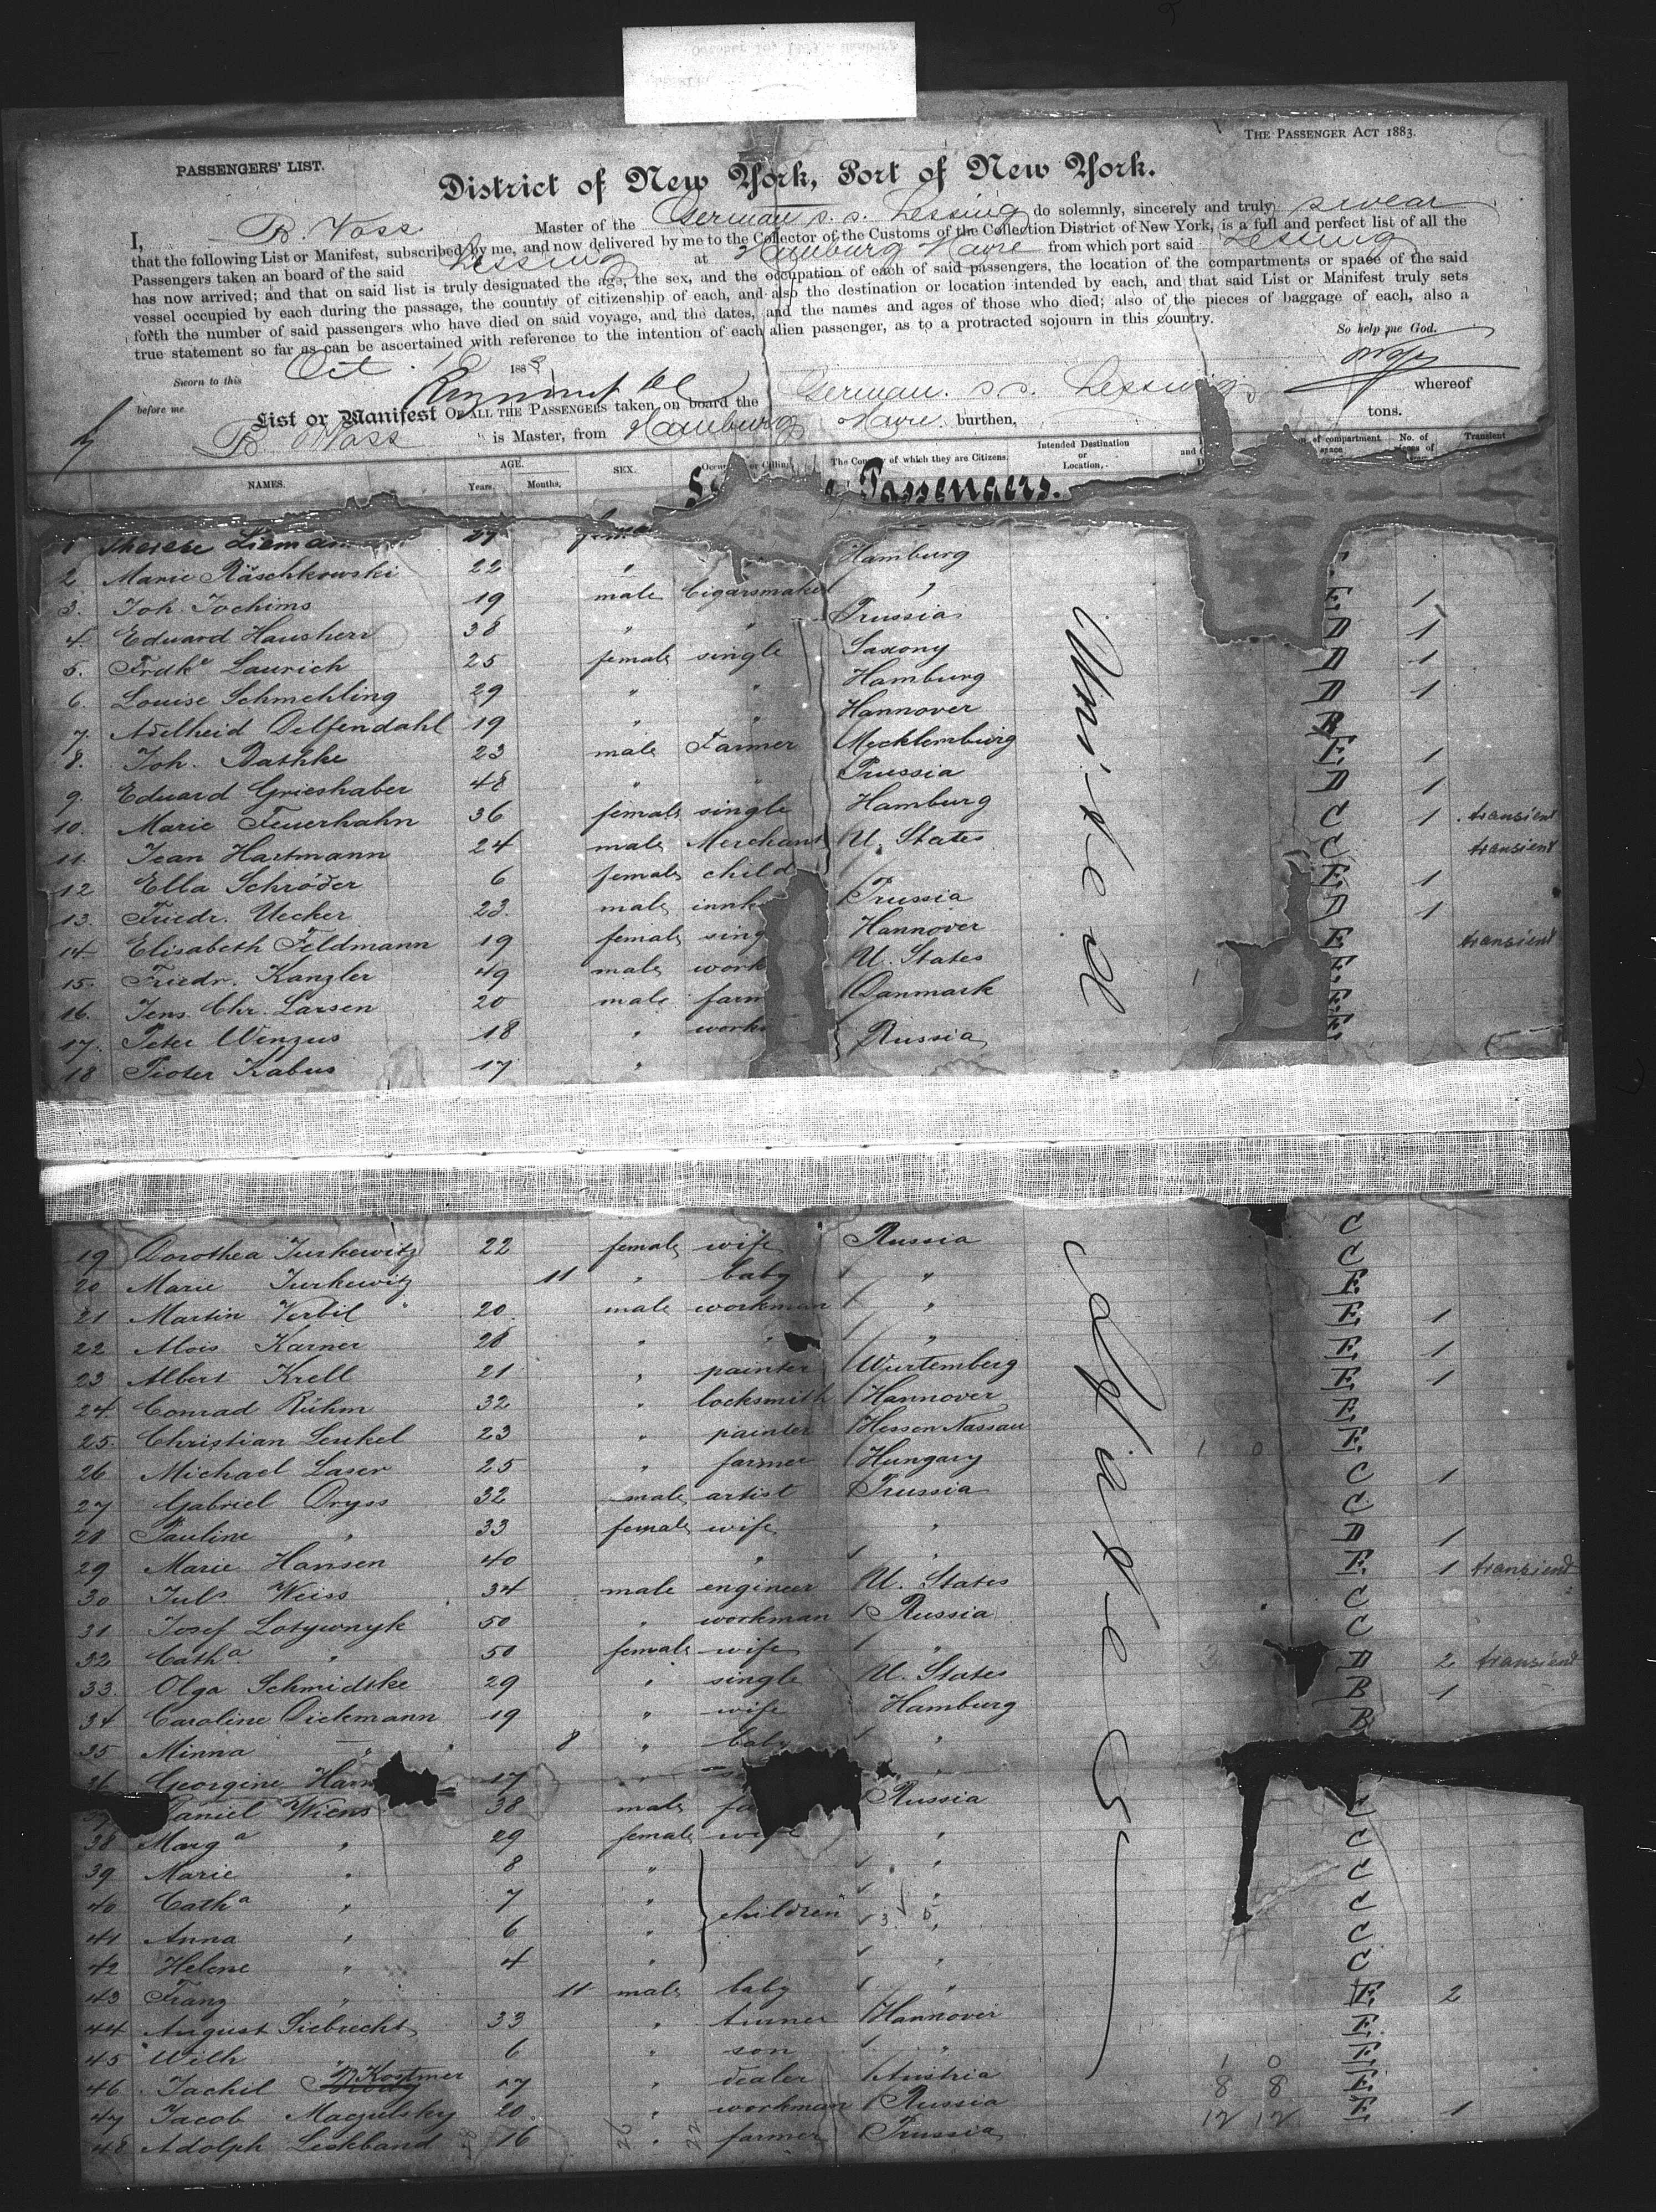 THE PASSENGER ACT 1883.
PASSENGERS' LIST.
District of New York, Port of New York.
I, B. Voss Master of the German s. s. Lessing do solemnly, sincerely and truly swear
that the following List or Manifest, subscribed by me, and now delivered by me to the Collector of the Customs of the Collection District of New York, is a full and perfect list of all the
Passengers taken on board of the said Lessing at Hamburg Havre from which port said Lessing
has now arrived; and that on said list is truly designated the age, the sex, and the occupation of each of said passengers, the location of the compartments or space of the said
vessel occupied by each during the passage, the country of citizenship of each, and also the destination or location intended by each, and that said List or Manifest truly sets
forth the number of said passengers who have died on said voyage, and the dates, and the names and ages of those who died; also of the pieces of baggage of each, also a
true statement so far as can be ascertained with reference to the intention of each alien passenger, as to a protracted sojourn in this country.
So help me God.
Sworn to this Oct. 16 1883
before me
List or Manifest OF ALL THE PASSENGERS taken on board the German. s. s. Lessing whereof
B. Voss is Master, from Hamburg Havre. burthen, tons.
NAMES. AGE. Years. Months. SEX. The Country of which they are Citizens. Intended Destination or Location. of compartment space No. of Transient
Passengers.
1 Therese 27
2 Marie Räschkowski 22 " Hamburg
3. Joh. Jochims 19 male Cigarsmaker " E. 1
4. Eduard Hausherr 38 " " Prussia D 1
5. Frdke Laurich 25 female single Saxony D 1
6. Louise Schmehling 29 " " Hamburg D 1
7. Adelheid Delfendahl 19 " " Hannover B
8. Joh. Bathke 23 male Farmer Mecklemburg E. 1
9. Eduard Grieshaber 48 " " Prussia D 1
10. Marie Feuerhahn 36 female single Hamburg C 1 transient
11. Jean Hartmann 24 male Merchant U. States C transient
12 Ella Schröder 6 female child " E. 1
13. Friedr. Uecker 23. male Prussia D 1
14 Elisabeth Feldmann 19 female Hannover E. transient
15. Friedr. Kanzler 49 male U. States E.
16. Jens Chr. Larsen 20 male Danmark E.
17. Peter Winzus 18 " Russia E.
18 Pioter Kabus 17 "
19 Dorothea Jurkewitz 22 female wife Russia C
20 Marie Jurkewitz 11 " baby " C
21 Martin Verbil 20. male workman " E.
22 Alois Karner 28 " " " E. 1
23 Albert Krell 21 " painter Würtemberg E. 1
24. Conrad Rühm 32 " locksmith Hannover E. 1
25. Christian Leukel 23 " painter Hessen Nassau E.
26 Michael Laser 25 " farmer Hungary E.
27 Gabriel Dryss 32 male artist Prussia C 1
28 Pauline " 33 female wife " C
29 Marie Hansen 40 " " D 1
30 Juls Weiss 34 male engineer U. States E. 1 transient
31 Josef Lotywnyk 50 " workman Russia C
32 Catha " 50 female wife " C
33. Olga Schmidtke 29 " single U. States D 2 transient
34 Caroline Dickmann 19 " wife Hamburg B 1
35 Minna " 8 " baby " B
36 Georgine 17 "
Daniel Wiens 38 male Russia C
38 Marga " 29 female wife " C
39 Marie " 8 " " C
40 Catha " 7 " children " C
41 Anna " 6 " " C
42 Helene " 4 " " C
43 Franz " 11 male baby "
44 August Siebrecht 33 " turner Hannover E. 2
45 Wilh " 6 " son " E.
46 Jachil B Kostmer 17 " dealer Austria E.
47 Jacob Maczulsky 20. " workman Russia E.
48 Adolph Leskband 16 " farmer Prussia E. 1
United States